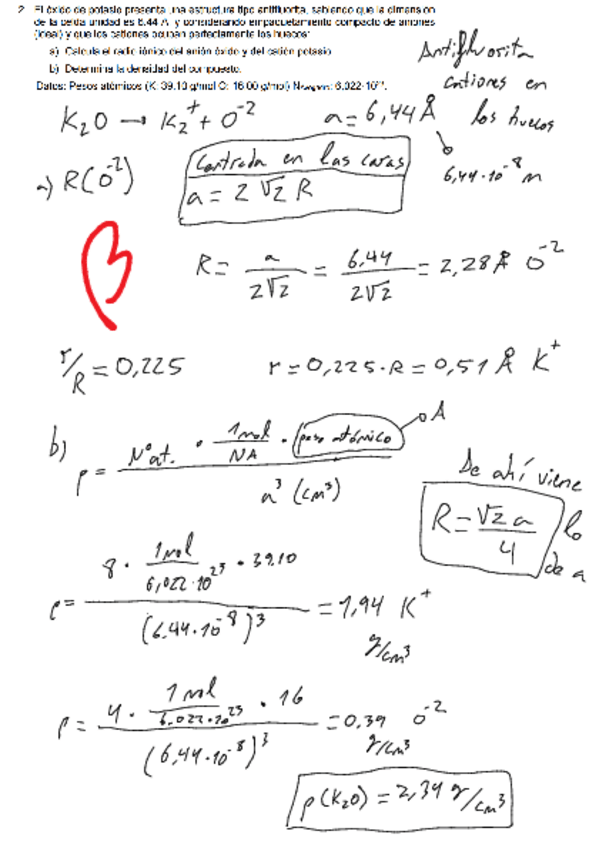 2. El óxido de potasio presenta una estructura tipo antifluorita, sabiendo que la dimensión
de la celda unidad es 6.44 Å y considerando empaquetamiento compacto de aniones
(ideal) y que los cationes ocupan perfectamente los huecos:
a) Calcula el radio iónico del anión óxido y del catión potasio
b) Determina la densidad del compuesto.
Datos: Pesos atómicos (K: 39.10 g/mol O: 16.00 g/mol) N 6.022·10²³.
Antifluorita
cationes en
los huecos
K₂O → K₂⁺ + O⁻²
a = 6,44 Å
6,44·10⁻⁸ m
a) R(O⁻²)
Centrada en las caras
a = 2√2 R
R = a/2√2 = 6.44/2√2 = 2,28 Å O⁻²
r/R = 0,225
r = 0,225·R = 0,51 Å K⁺
b) ρ = Nºat. · 1mol/NA · (peso atómico) / a³ (cm³)
A
De ahí viene
R = √2 a/4
lo
de a
ρ = 8 · 1mol/6,022·10²³ · 39.10 / (6.44·10⁻⁸)³ = 1,94 K⁺
g/cm³
ρ = 4 · 1mol/6.022·10²³ · 16 / (6,44·10⁻⁸)³ = 0.39 O⁻²
g/cm³
ρ(K₂O) = 2,34 g/cm³